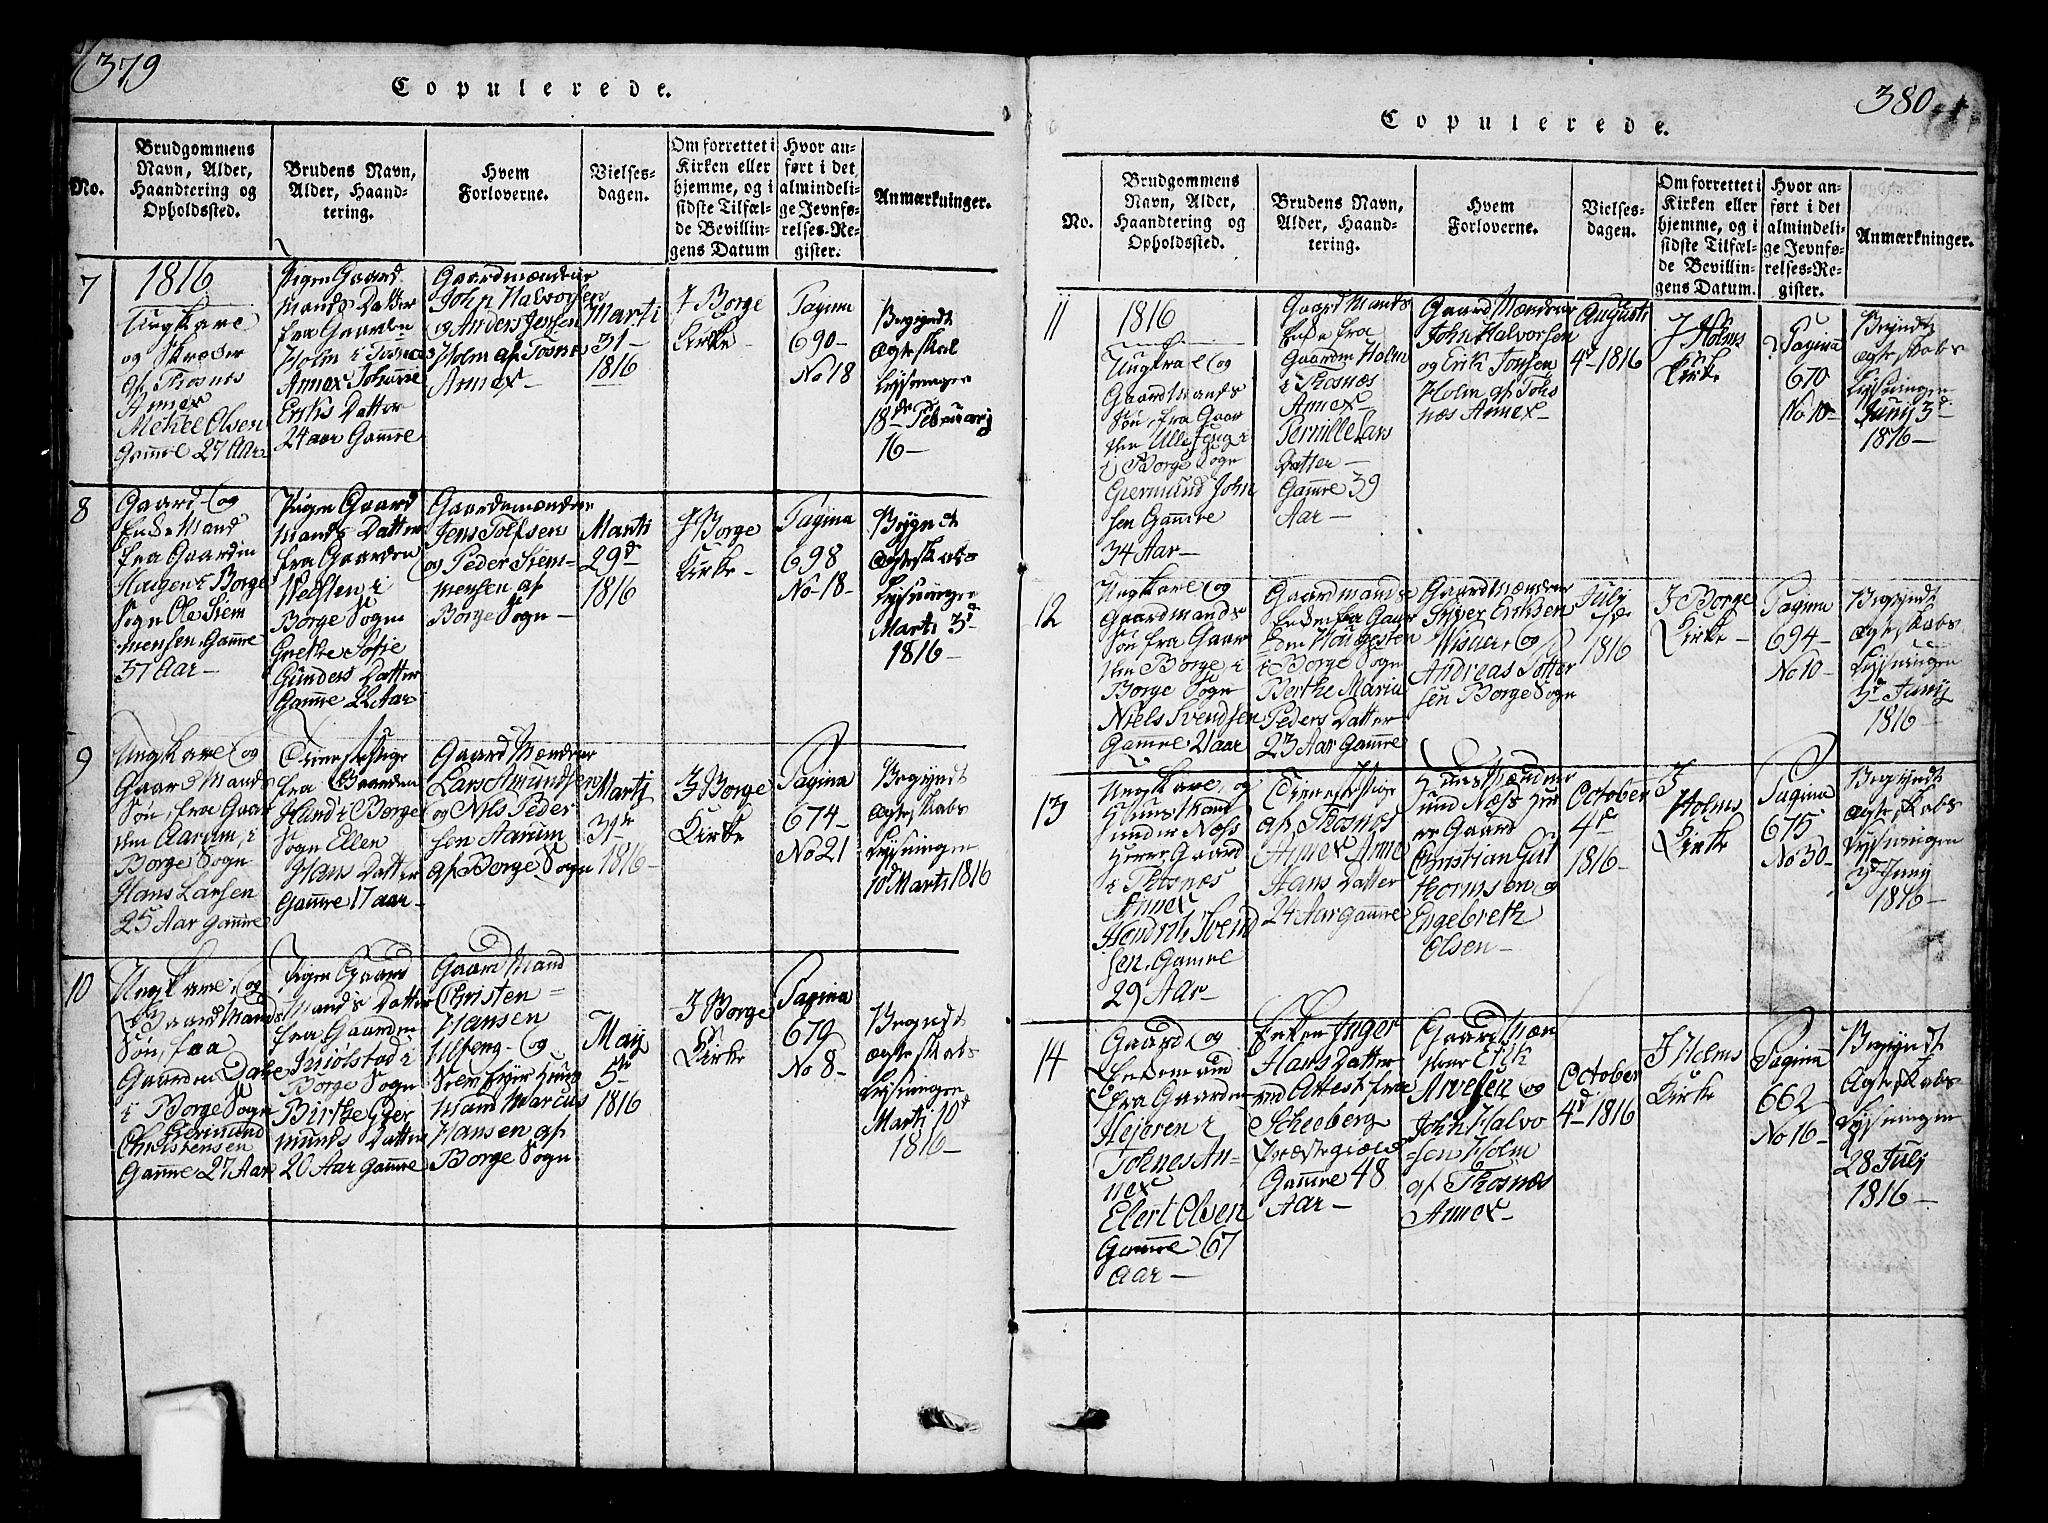 379
Copulerede.
No.
Brudgommens
Navn, Alder,
Haandtering og
Opholdssted.
Brudens Navn,
Alder, Haand-
tering.
Hvem
Forloverne.
Vielses-
dagen.
Om forrettet i
Kirken eller
hjemme, og i
sidste Tilfæl-
de Bevillin-
gens Datum
Hvor an-
ført i det
almindeli-
ge Jevnfø-
relses-Re-
gister.
Anmærkninger.
7
1816
Ungkare
og Skræder
af Thosnes
Annex
Mekel Olsen
Gamle 27 Aar
Pigen Gaard
Mands Datter
fra Gaarden
Holm i Tosnes
Annex Johanne
Eriks Datter
24 aar Gamle
Gaardmændene
John Halvorsen
og Anders Jensen
Holm af Tosnes
Annex
Marti
31
1816
I Borge
Kirke
Pagina
690
No 18
Begyndt
Ægteskal
Lysningen
18de Februarj
16
8
Gaard og
Enke Mand
fra Gaardin
Haugen i Borge
Sogn Ole Siem
mensen Gamle
37 Aar
Pigen Gaard
Mands Datter
fra Gaarden
i
Borge Sogn
Grethe Sofie
Gunders Datter
Gamle 22 Aar
Gaardemændene
Jens Tolfsen
og Peder Siem-
mensen af
Borge Sogn
Marti
29d
1816
I Borge
Kirke
Pagina
698
No 18
Begyndt
Ægteskabs
Lysningen
Marti 3d
1816
9
Ungkare og
Gaard Mands
Søn, fra Gaar
den Aarum, i
Borge Sogn
Hans Larsen
25 Aar Gamle
Tieneste Pige
fra Gaarden
Hund i Borge
Sogn Ellen
Hans Datter
Gamle 17 aar
Gaard Mændene
Lars Amundsen
og Nils Peder
sen Aarum
af Borge Sogn
Marti
31te
1816
I Borge
Kirke
Pagina
674
No 21
Begyndt
Ægteskabs
Lysningen
10d Marti 1816
10
Ungkare, og
Gaard Mands
Søn, fra
Gaarden Dahle
i Borge Sogn
Giermund
Christensen
Gamle 27 Aar
Pigen Gaard
Mands Datter
fra Gaarden
Miølstad i
Borge Sogn
Birthe Gier
munds Datter
20 Aar Gamle
Gaard Mand
Christen
Hansen
Ulfeng og
Huus
Mand Marcus
Hansen af
Borge Sogn
May
5te
1816
I Borge
Kirke
Pagina
679
No 8
Begyndt
Ægteskabs
Lysningen
Marti 10d
1816
380
Copulerede.
No.
Brudgommens
Navn, Alder,
Haandtering og
Opholdssted.
Brudens Navn,
Alder, Haand-
tering.
Hvem
Forloverne.
Vielses-
dagen.
Om forrettet i
Kirken eller
hjemme, og i
sidste Tilfæl-
de Bevillin-
gens Datum.
Hvor an-
ført i det
almindeli-
ge Jevnfø-
relses-Re-
gister.
Anmærkninger.
11
1816
Ungkare og
Gaard Mands
Søn, fra Gaar
den Ullefeng i
Borge Sogn
Giermund John
sen Gamle
34 Aar
Gaard Mands
Enke fra
Gaarden Holm
i Thosnæs
Annex
Pernille Lars
Datter
Gamle 39
Aar
Gaard Mændene
John Halvorsen
og Erik Jonsen
Holm af Tohs
næs Annex
Augusti
4d 1816
I Holms
Kirke
Pagina
670
No 10
Begyndt
Ægteskabs
Lysningen
Junij 3d
1816
12
Ungkare og
Gaardmands
Søn fra Gaar
den Borge i
Borge Sogn
Niels Svendsen
Gamle 21 aar
Gaardmands
Enken fra Gaar
den Haugesten
i Borge Sogn
Berthe Maria
Peders Datter
23 Aar Gamle
Gaard Mændene
Syver Eriksen
Visuer og
Andreas Totter
sen Borge Sogn
July
1816
I Borge
Kirke
Pagina
694
No 10
Begyndt
Ægteskabs
Lysningen
3d Junij
1816
13
Ungkare, og
Huus Mand
under Næss
Herre Gaard
i Thosnæs
Annex
Hendrik Svend
sen, Gamle
29 Aar
Tieneste Pige
af Thosnæs
Annex Anne
Hans Datter
24 Aar Gamle
Huus Mændene
und Næss Her
re Gaard
Christian Gut
thormsen og
Engebreth
Olsen
October
4d
1816
I
Holms
Kirke
Pagina
675
No 30
Begyndt
Ægteskabs
Lysningen
3d Juny
1816
14
Gaard og
Enkemand
fra Gaarden
Hejeren i
Tohnes An-
nex
Elert Olsen
Gamle 67
Aar
Enken Inger
Hans Datter
ved Attest fra
Scheeberg
Præstegiæld
Gamle 48
Aar
Gaard Mæn
dene Erik
Arvesen og
John Halvo
sen Holm
af Thosnæs
Annex
October
4d 1816
I Holms
Kirke
Pagina
662
No 16
Begyndt
Ægteskabs
Lysningen
28 July
1816